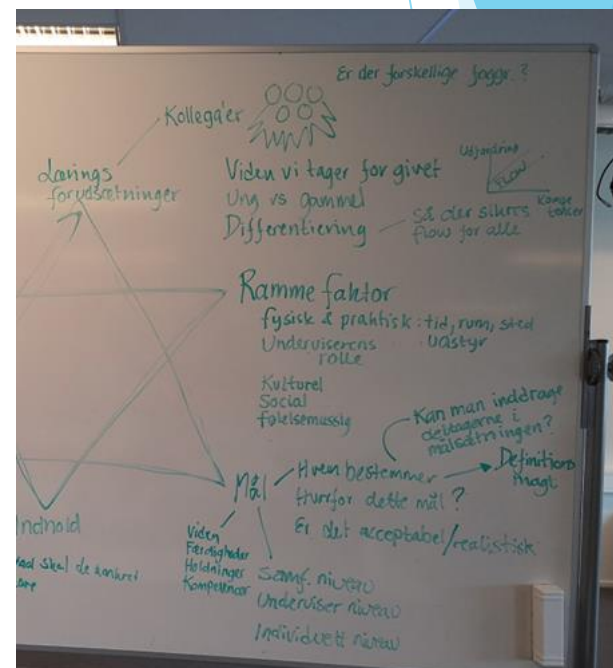 Er der forskellige faggr.?
Kollega'er
Lærings
forudsætninger
Viden vi tager for givet
Ung vs gammel
Differentiering
Så der sikres
flow for alle
Udfordring
FLOW
Kompe
tencer
Ramme faktor
fysisk & praktisk: tid, rum, sted
Udstyr
Underviserens
rolle
Kulturel
Social
følelsemæssig
Kan man inddrage
deltagerne i
målsætningen?
Mål
Hvem bestemmer
Definitions
magt
Hvrfor dette mål?
Er det acceptabel/realistisk
Viden
Færdigheder
Holdninger
Kompetencer
Samf. niveau
Underviser niveau
Individuelt niveau
Indhold
skal de konkret